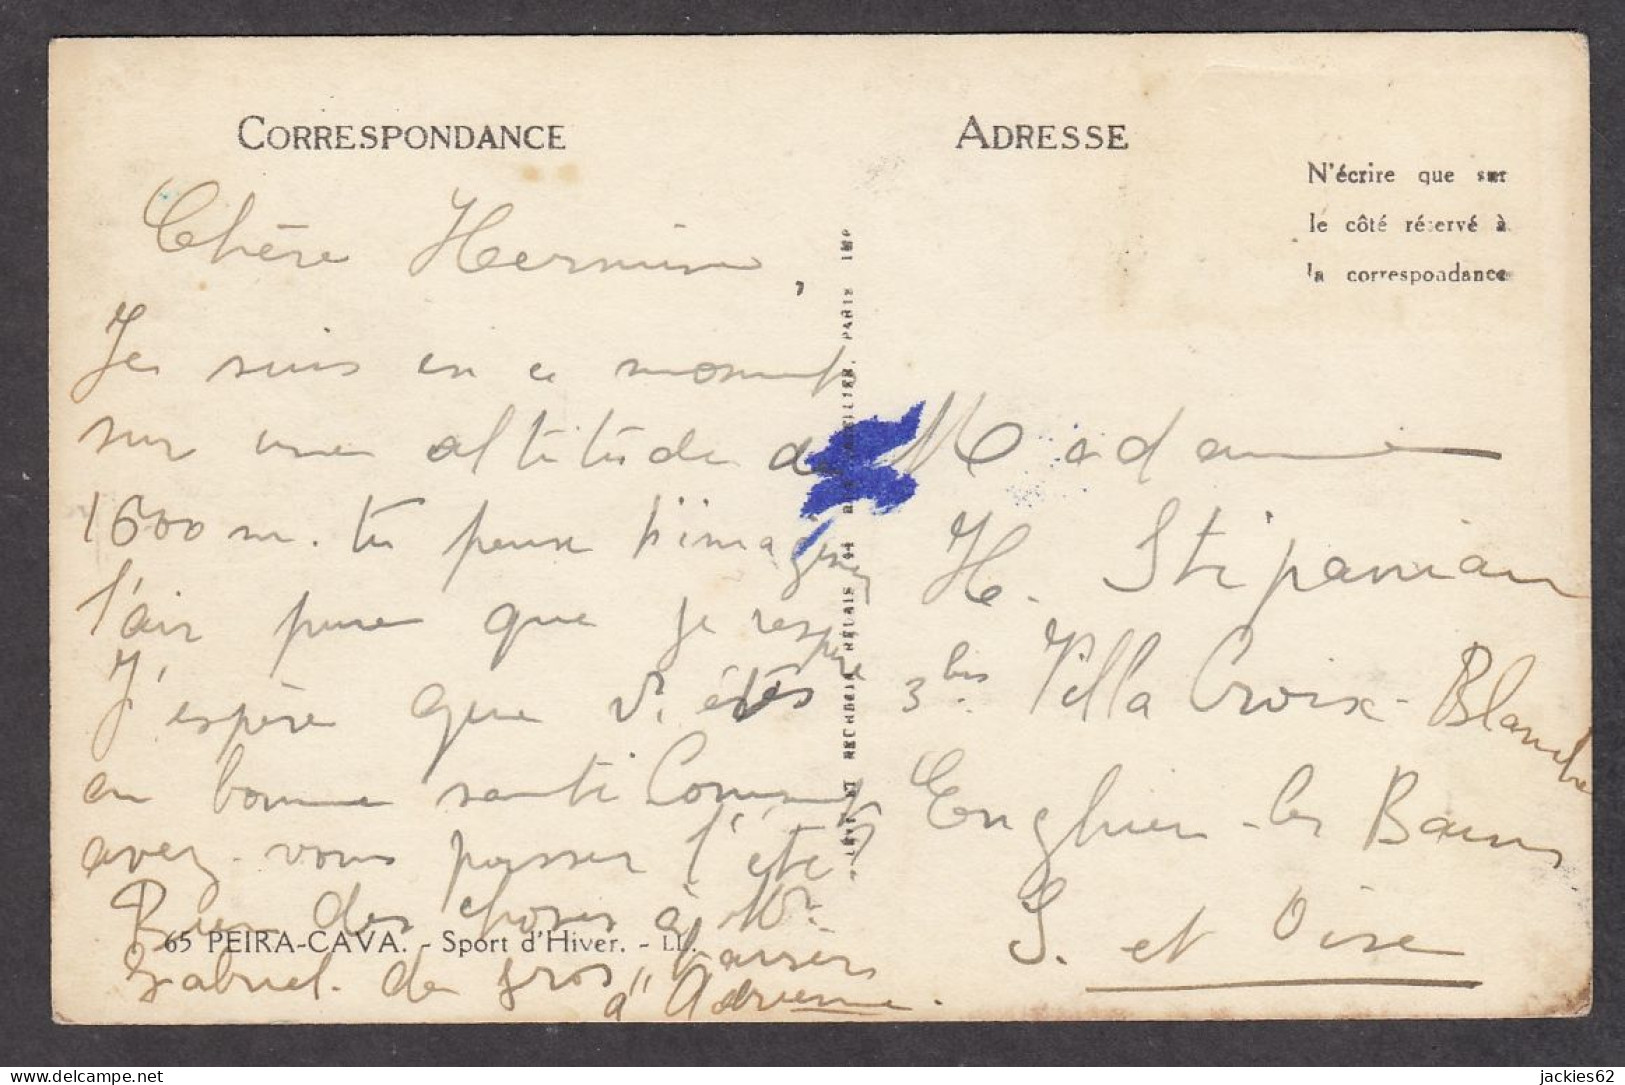 CORRESPONDANCE
Chère Hermine,
Je suis en ce moment
sur une altitude de
1600 m. tu peux t'imaginer
l'air pure que je respire
J'espère que v. êtes
en bonne santé Comment
avez-vous passer l'été?
Bien des choses à Mr.
Gabriel. de gros baisers
à Adrienne.
65 PEIRA-CAVA. - Sport d'Hiver. - LL.
LÉVY ET NEURDEIN RÉUNIS, 44 PARIS IMP
ADRESSE
N'écrire que sur
le côté réservé à
la correspondance
Madame
H. Stipanian
3 bis Villa Croix-Blanche
Enghien-les Bains
S. et Oise
jackies62